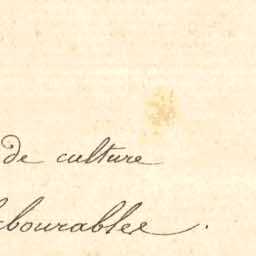 de culture
labourables.